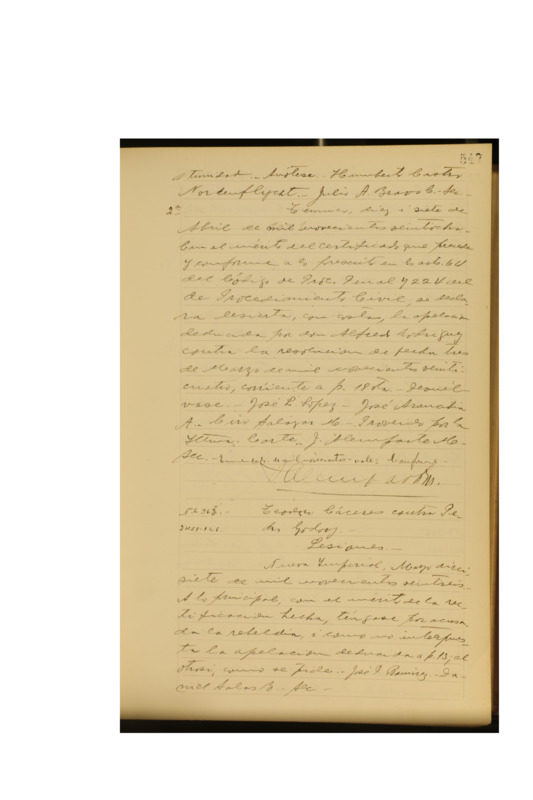 547
Anótese. Humberto Castro
Nordenflycht. - Julio A. Bravo C. - Sec -
2ª Temuco, diez i siete de
Abril de mil novecientos veintiocho.
Con el mérito del certificado que precede
y conforme a lo prescrito en los arts. 64
del Código de Proc. Penal y 224 del
de Procedimiento Civil, se decla-
ra desierta, con costas, la apelacion
deducida por don Alfredo Rodriguez
contra la resolucion de fecha tres
de Marzo de mil novecientos veinti
cuatro, corriente a f. 18 vta. - Devuél-
vase. - José L. López - José Arancibia
A. - Ciro Salazar M. - Proveido por la
Iltma. Corte. - J. Montparte M. -
Sec. -
Cáceres contra Pe-
dro Godoy
Lesiones. -
Nueva Imperial, Marzo dieci
siete de mil novecientos veintiseis.
A lo principal, con el mérito de la no-
tificacion hecha, téngase por acusa-
da la rebeldia, i como no interpues-
ta la apelacion deducida a f. 13; al
otrosi, como se pide. - José I. Ramirez - Da-
niel Salas B. - Sec -